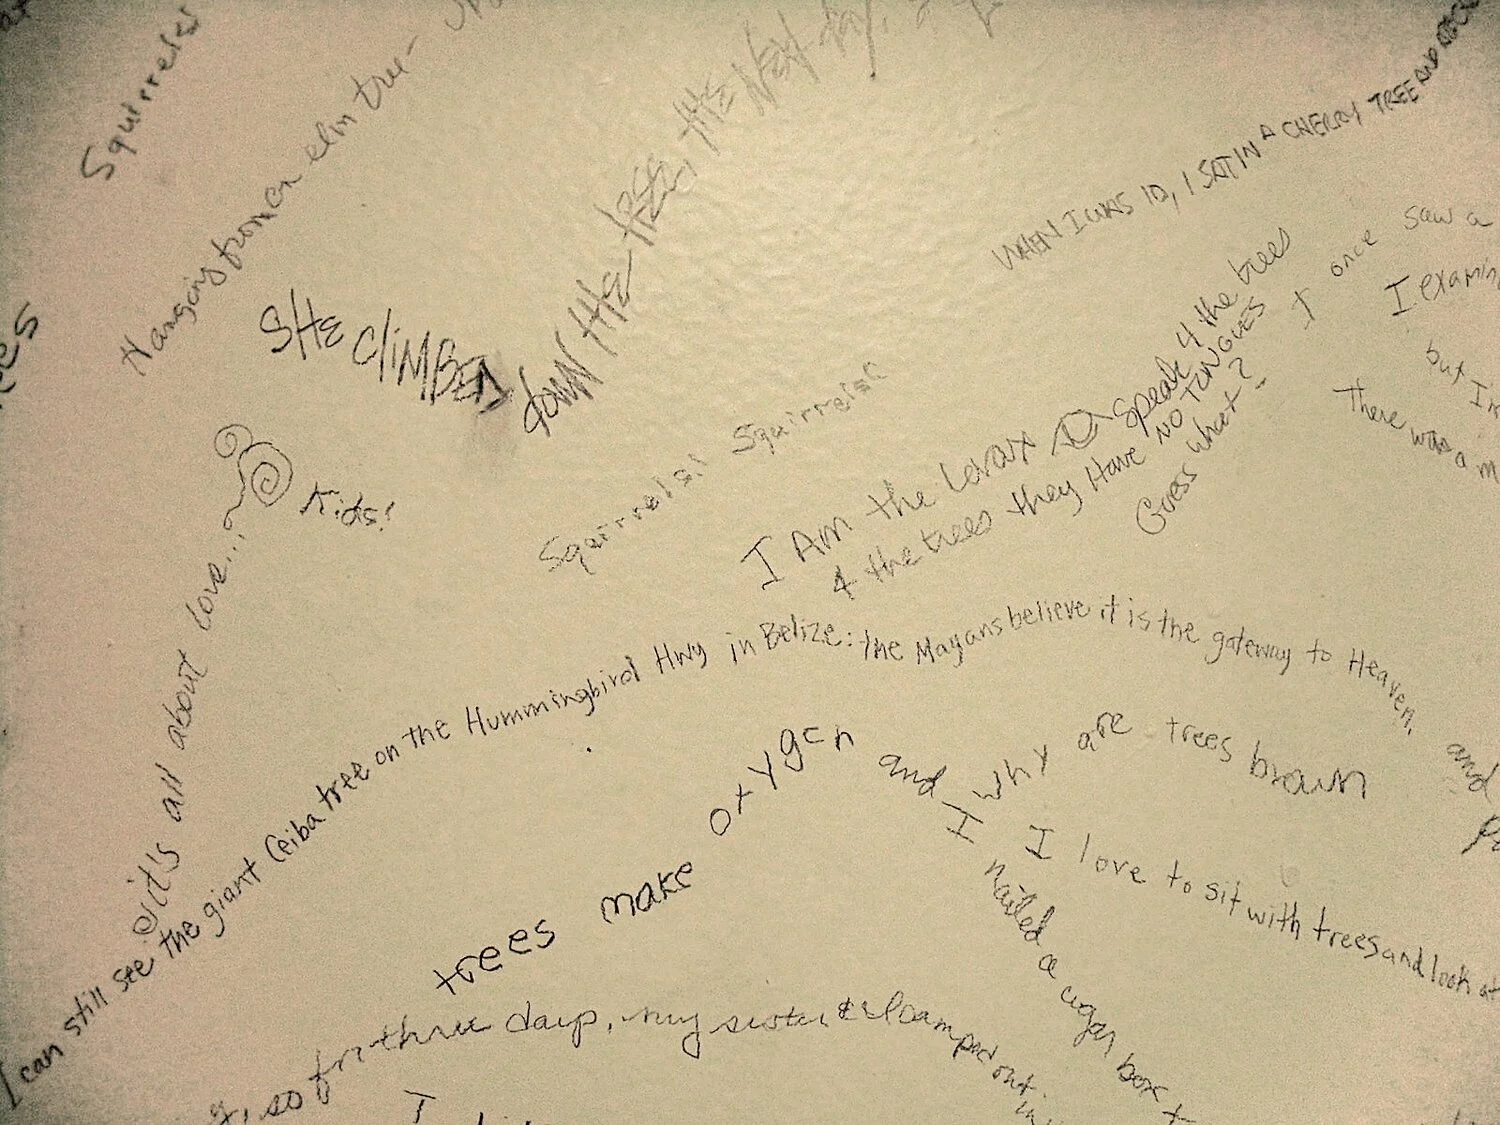 Squirrels
Hanging from an elm tree-
SHE CLIMBED down THE tree, THE NEXT
WHEN I WAS 10, I SAT IN A CHERRY TREE AND
I once saw a
I examin
but I
There was a m
Kids!
Squirrels! Squirrels!
I Am the Lorax I speak 4 the trees
4 the trees they Have NO TONGUES
Guess what-?
it's all about love...
I can still see the giant Ceiba tree on the Hummingbird Hwy in Belize: the Mayans believe it is the gateway to Heaven.
and
Why are trees brawn
trees make oxygen and
I love to sit with trees and look at
I nailed a cigar box t
so for three days, my sister & I camped out in
I